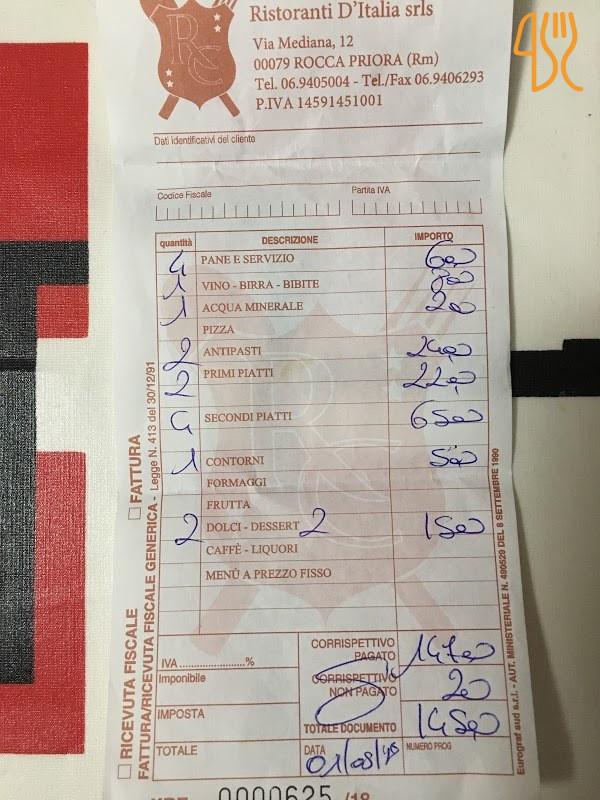 Ristoranti D'Italia srls
Via Mediana, 12
00079 ROCCA PRIORA (Rm)
Tel. 06.9405004 - Tel./Fax 06.9406293
P.IVA 14591451001
Dati identificativi del cliente
Codice Fiscale Partita IVA
quantità DESCRIZIONE IMPORTO
4 PANE E SERVIZIO 6,00
1 VINO - BIRRA - BIBITE
1 ACQUA MINERALE 2,00
PIZZA
2 ANTIPASTI 24,00
2 PRIMI PIATTI 22,00
4 SECONDI PIATTI 65,00
1 CONTORNI 5,00
FORMAGGI
FRUTTA
2 DOLCI - DESSERT 2 15,00
CAFFÈ - LIQUORI
MENÙ A PREZZO FISSO
CORRISPETTIVO PAGATO 147,00
IVA ...................... %
CORRISPETTIVO NON PAGATO 2,00
Imponibile
IMPOSTA
TOTALE DOCUMENTO 145,00
TOTALE
DATA 01/08/18
NUMERO PROG
0000625 /18
RICEVUTA FISCALE
FATTURA
FATTURA/RICEVUTA FISCALE GENERICA - Legge N. 413 del 30/12/91
Eurograf sud s.r.l. - AUT. MINISTERIALE N. 490529 DEL 8 SETTEMBRE 1990